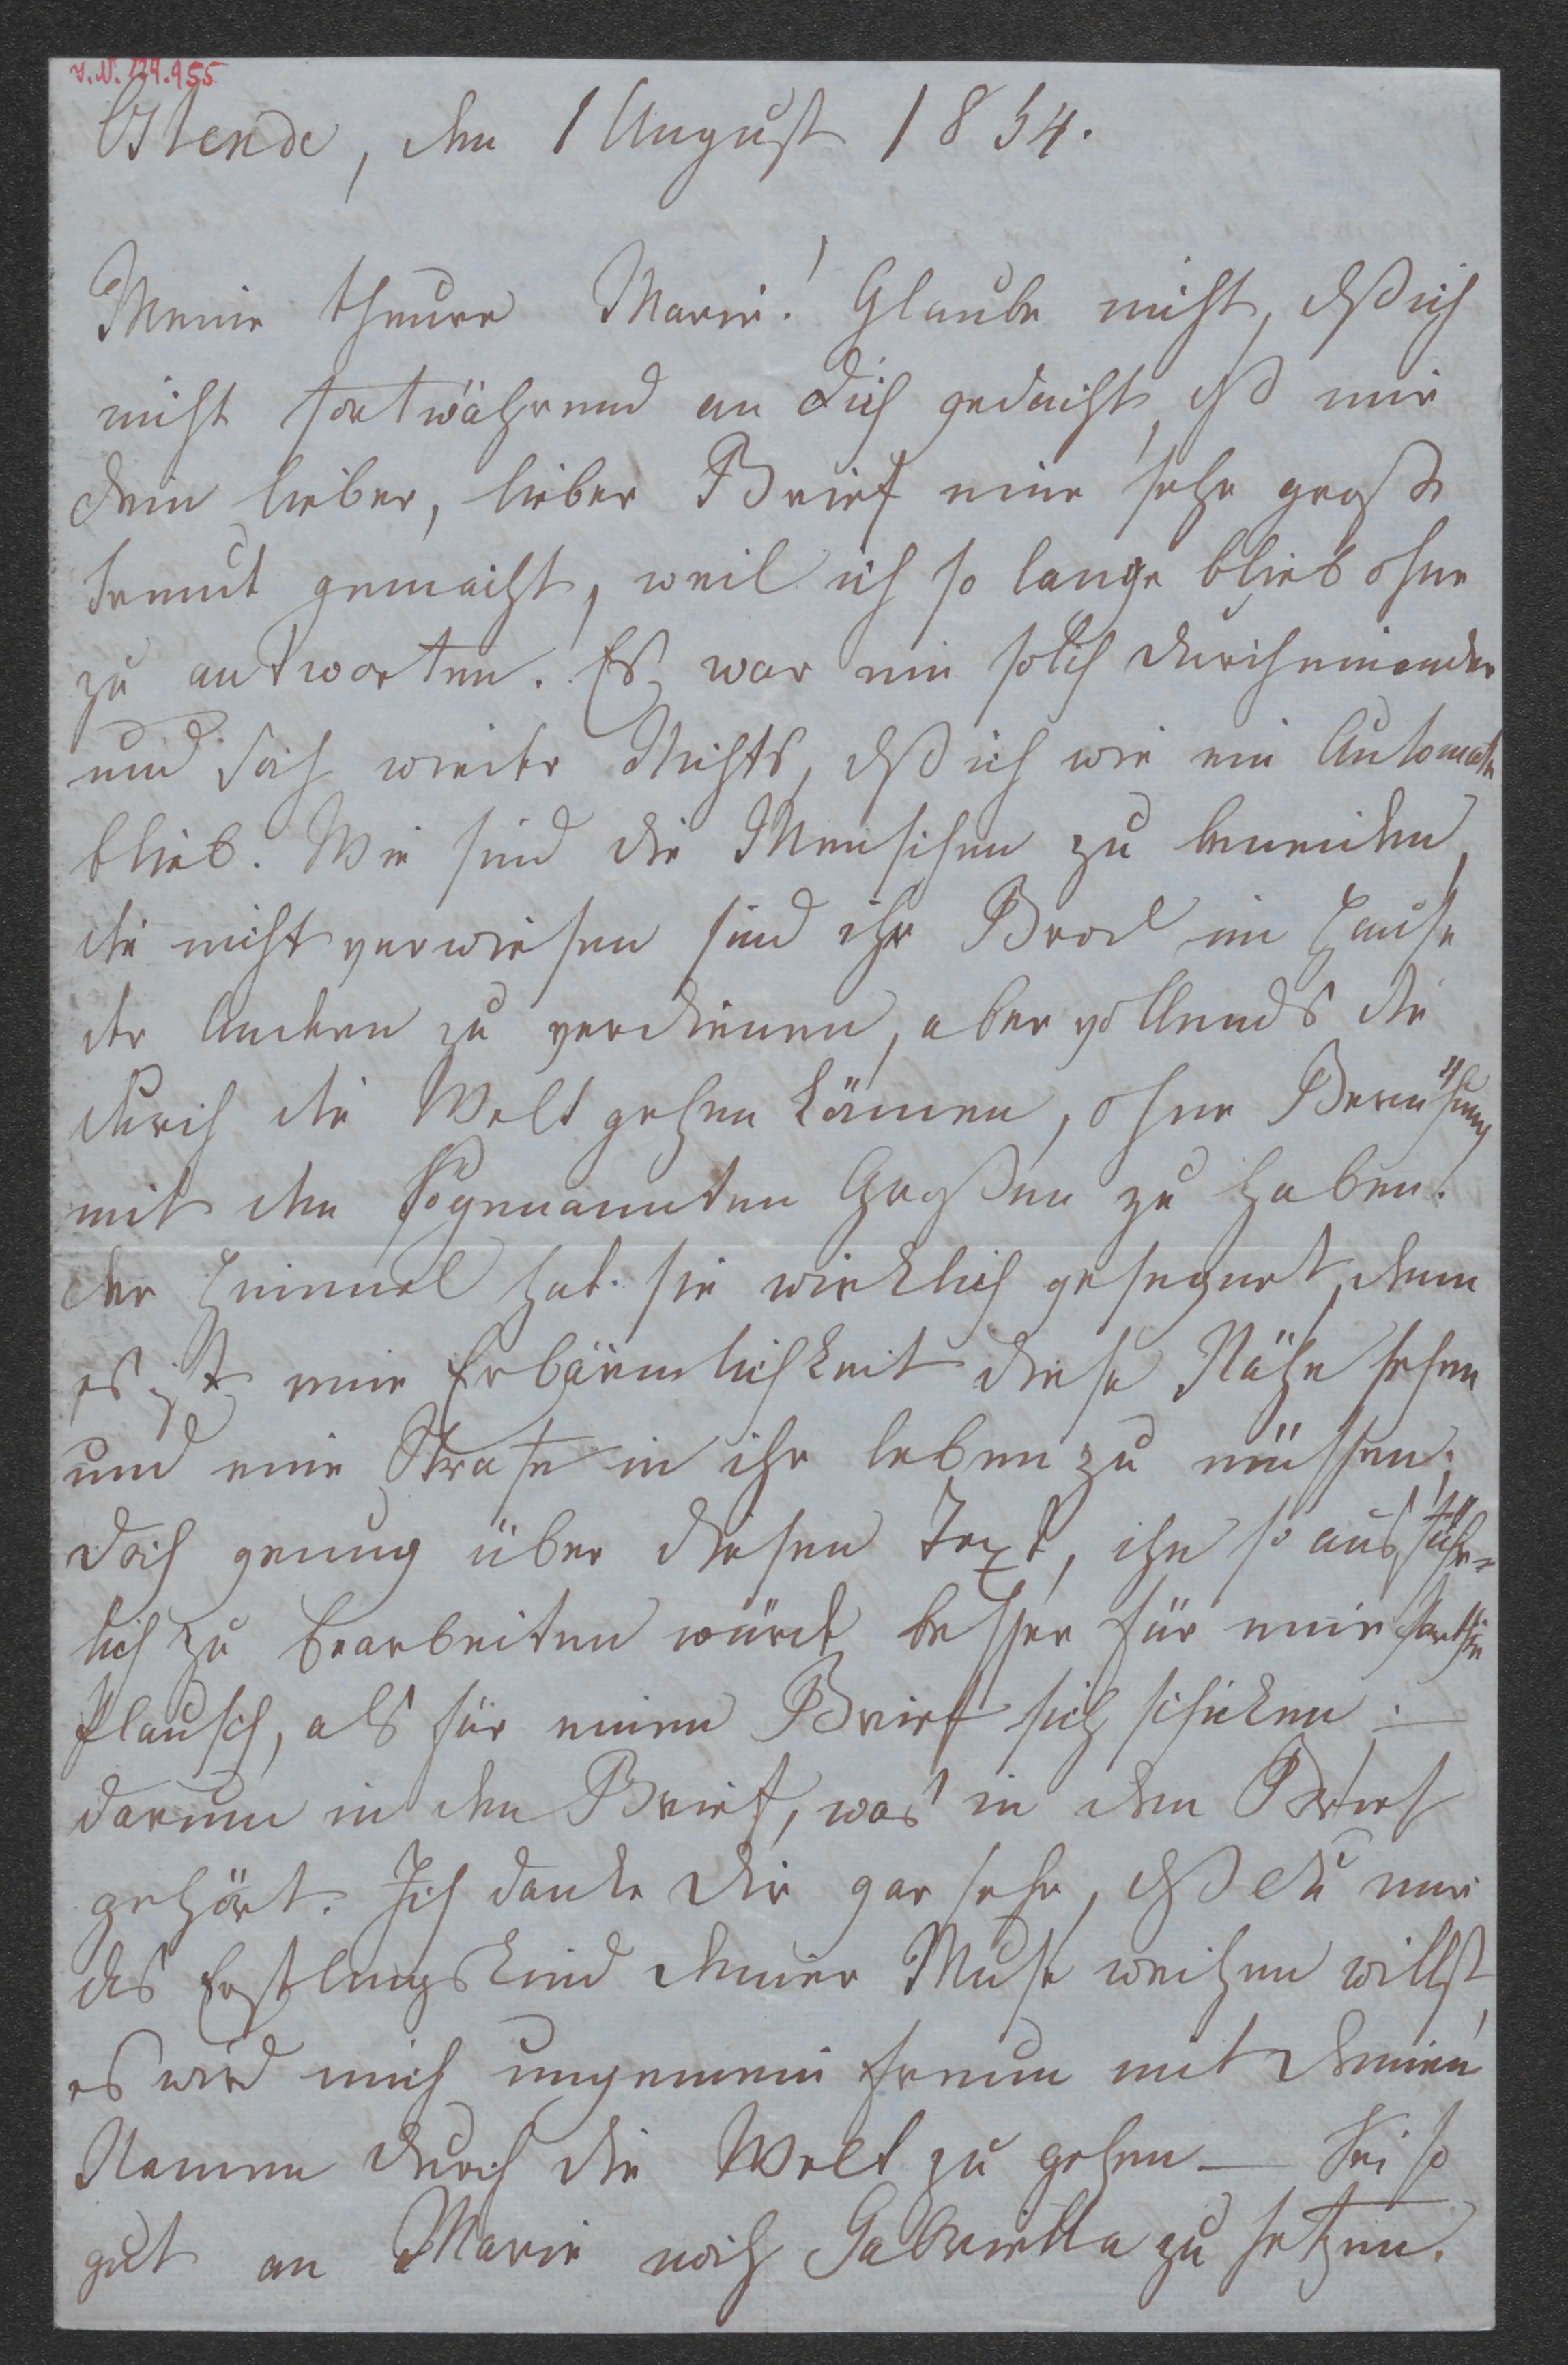 J.N. 129.955
Ostende, den 1 August 1854.
Meine theure Marie! Glaube nicht, dß ich
nicht fortwährend an dich gedacht, dß mir
dein lieber, lieber Brief eine sehr große
Freud gemacht, weil ich so lange blieb ohne
zu antworten. Es war ein solch Durcheinander
und doch wieder Nichts, dß ich wie ein Automat
blieb. Wie sind die Menschen zu beneiden,
die nicht verwiesen sind ihr Brod im Hause
der Andern zu verdienen, aber vollends die
durch die Welt gehen können, ohne Berührung
mit den sogenannten Großen zu haben.
der Himmel hat sie wirklich gesegnet, denn
es ist eine Erbärmlichkeit diese Nähe sehen
und eine Strafe in ihr leben zu müssen;
doch genug über diesen Text, ihn so ausführ-
lich zu bearbeiten würde besser für eine Parthie
Plausch, als für einen Brief sich schicken: —
darum in den Brief, was in den Brief
gehört. Ich danke dir gar sehr, dß du mir
das Erstlingskind deiner Muse weihen willst,
es wird mich ungemein freuen mit deinem
Namen durch die Welt zu gehen — Sei so
gut an Marie noch Gabriella zu setzen.